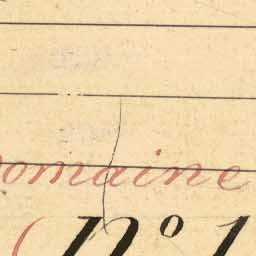 Domaine
(N° 1